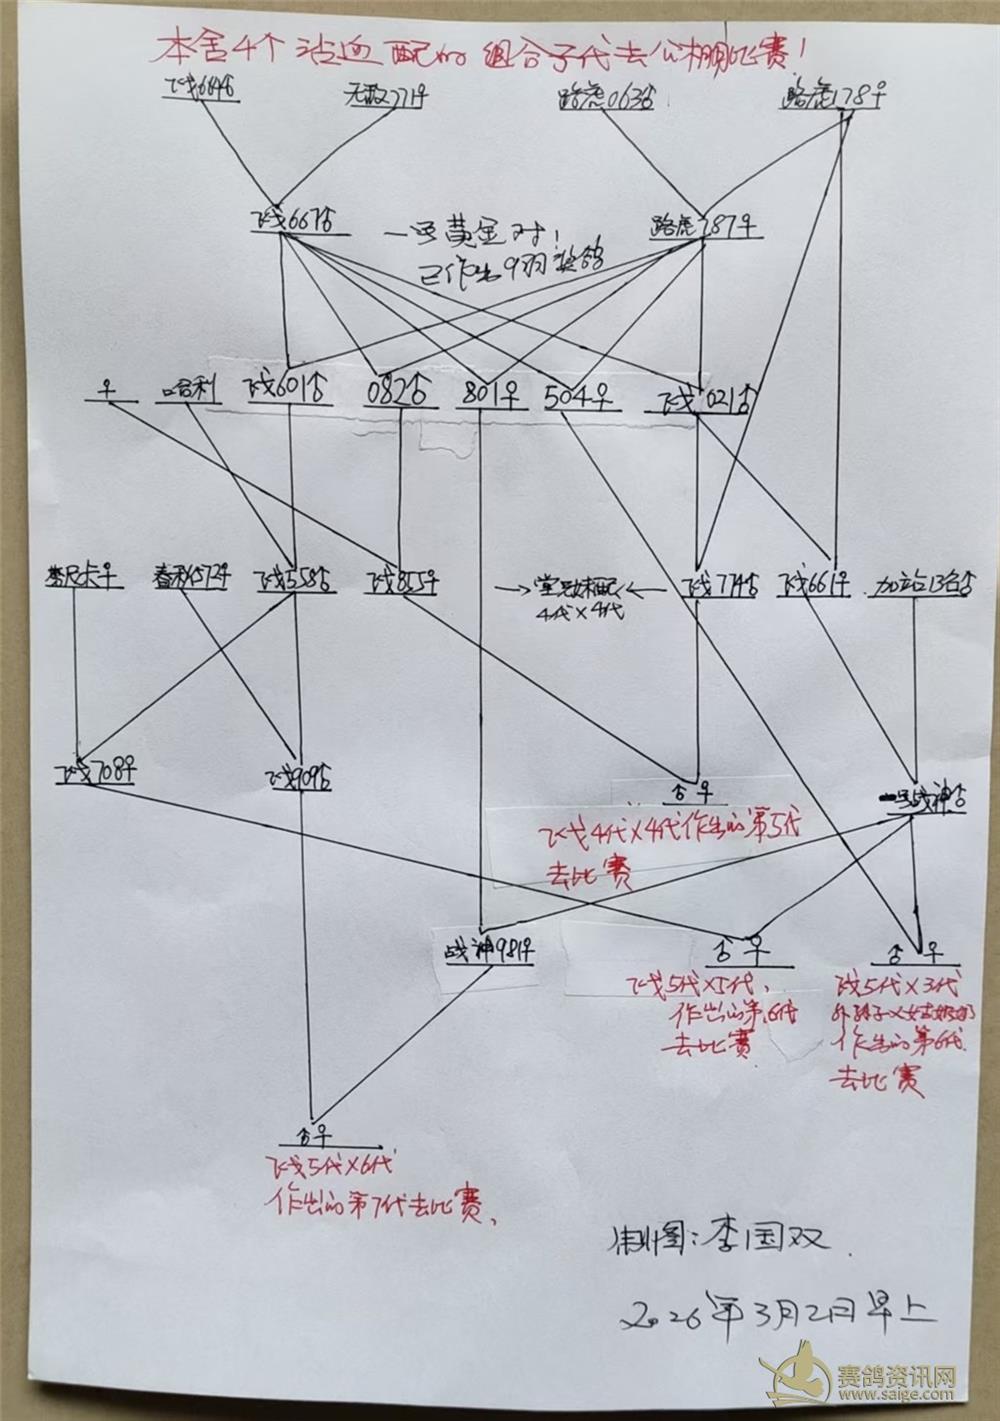 本舍4个沾血配的组合子代去公棚比赛！
飞戈684♂ 无敌771♀ 路虎063♂ 路虎178♀
飞戈667♂ 一号黄金对！ 路虎787♀
已作出9羽奖鸽
♀ 哈利 飞戈601♂ 082♂ 801♀ 504♀ 飞戈021♂
卡♀ 春秋572♀ 飞戈558♂ 飞戈855♀ →堂兄妹配← 飞戈774♂ 飞戈661♀ 加站13名♂
4代×4代
飞戈708♀ 飞戈909♂ ♂♀ 一号战神♂
飞戈4代×4代作出的第5代
去比赛
战神981♀ ♂♀ ♂♀
飞戈5代×5代、
作出的第6代
去比赛
飞戈5代×3代
外孙子×姑奶奶
作出的第6代
去比赛
♂♀
飞戈5代×6代
作出的第7代去比赛、
制图：李国双
2026年3月2日早上
赛鸽资讯网
www.saige.com